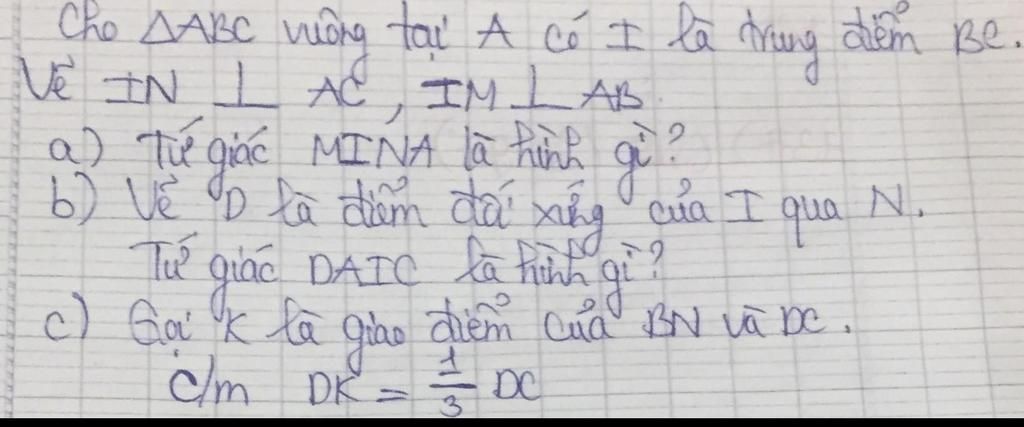 Cho △ABC vuông tại A có I là trung điểm BC.
Vẽ IN ⊥ AC, IM ⊥ AB.
a) Tứ giác MINA là hình gì?
b) Vẽ D là điểm đối xứng của I qua N.
Tứ giác DAIC là hình gì?
c) Gọi K là giao điểm của BN và DC.
C/m DK = 1/3 DC